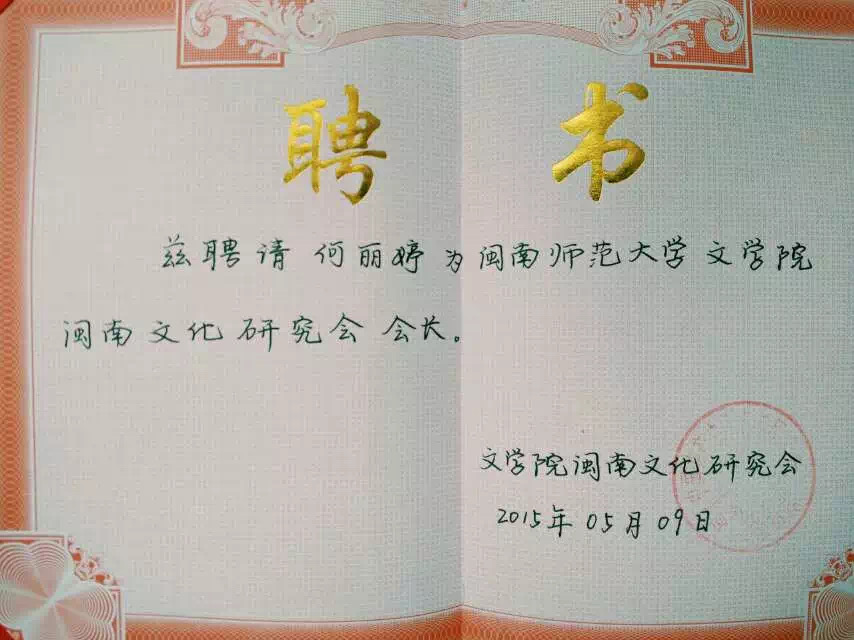 聘书
兹聘请 何丽婷 为 闽南师范大学 文学院
闽南文化研究会 会长。
文学院闽南文化研究会
2015年 05月 09日